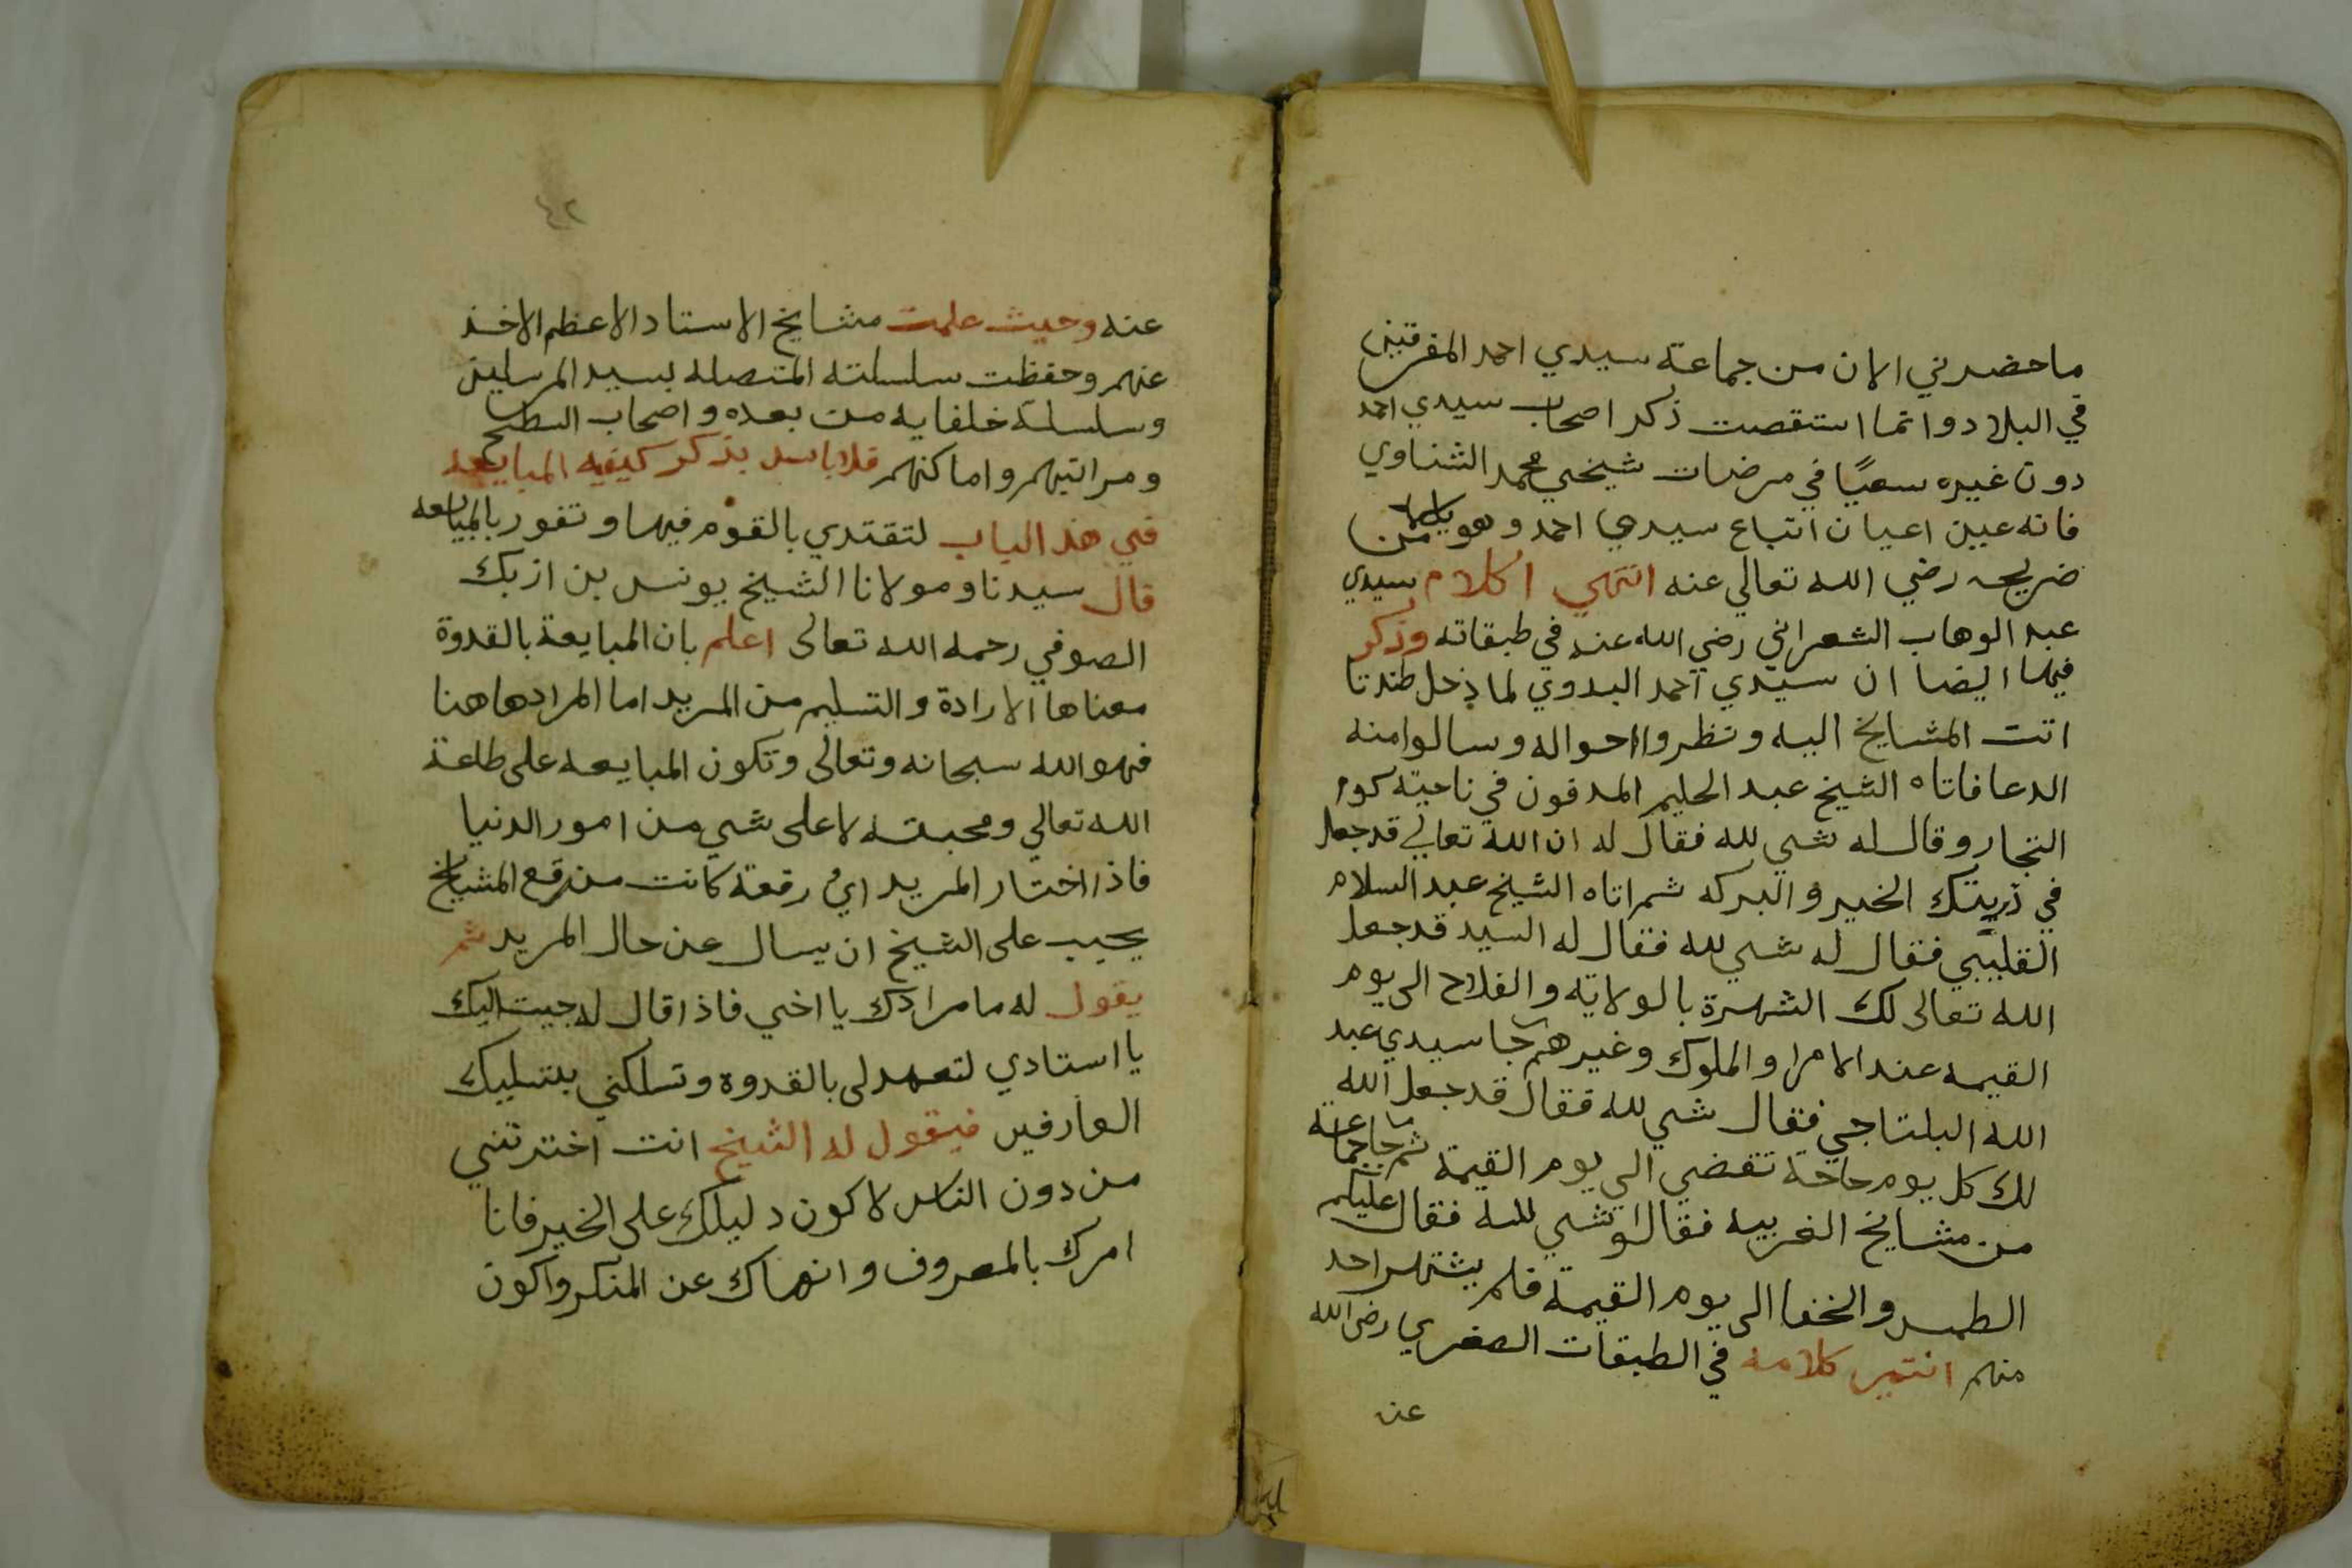 ما حضرني الان من جماعة سيدي احمد المفرقين
في البلاد وانما استقصت ذكر اصحاب سيدي احمد
دون غيره سعيًا في مرضات شيخي محمد الشناوي
فانه عين اعيان اتباع سيدي احمد وهو من
ضريحه رضي الله تعالي عنه انتهي اكلام سيدي
عبد الوهاب الشعراني رضي الله عنه في طبقاته وذكر
فيها ايضا ان سيدي احمد البدوي لما دخل طندتا
اتت المشايخ اليه ونظروا احواله وسالوا منه
الدعا فاتاه الشيخ عبد الحليم المدفون في ناحية كوم
النجار وقال له شي لله فقال له ان الله تعالي قد جعل
في ذريتك الخير والبركه ثم اتاه الشيخ عبد السلام
القليبي فقال له شي لله فقال له السيد قد جعل
الله تعالى لك الشهرة بالولاية والفلاح الى يوم
القيمه عند الامرا والملوك وغيرهم جا سيدي عبد
الله البلتاجي فقال شي لله فقال قد جعل الله
لك كل يوم حاجة تقضي الي يوم القيمة ثم جا جماعة
من مشايخ الغربيه فقالوا شي لله فقال عليكم
الطمس والخفا الى يوم القيمة فلم يشتهر احد
منهم انتهى كلامه في الطبقات الصغري رضى الله
عنه
٤٢
عنه وحيث علمت مشايخ الاستاد الاعظم الاخذ
عنهم وحفظت سلسلته المتصله بسيد المرسلين
وسلسلة خلفايه من بعده واصحاب السطح
ومراتبهم واماكنهم فلا باس بذكر كيفيه المبايعه
في هذ الباب لتقتدي بالقوم فيها وتفوز بالمبايعه
قال سيدنا ومولانا الشيخ يونس بن ازبك
الصوفي رحمه الله تعالى اعلم بان المبايعة بالقدوة
معناها الارادة والتسليم من المريد اما المراد هاهنا
فهو الله سبحانه وتعالى وتكون المبايعه على طاعة
الله تعالي ومحبته لا على شي من امور الدنيا
فاذا اختار المريد اي رقعة كانت من رقع المشايخ
يجب على الشيخ ان يسال عن حال المريد ثم
يقول له ما مرادك يا اخي فاذا قال له جيت اليك
يا استادي لتعهد لى بالقدوة وتسلكني بتسليك
العارفين فيقول له الشيخ انت اخترتني
من دون الناس لاكون دليلك على الخير فانا
امرك بالمعروف وانهاك عن المنكر واكون